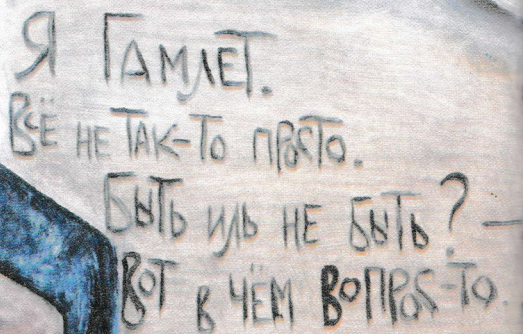 Я ГАМЛЕТ.
ВСЁ НЕ ТАК-ТО ПРОСТО.
БЫТЬ ИЛЬ НЕ БЫТЬ? —
ВОТ В ЧЁМ ВОПРОС-ТО.